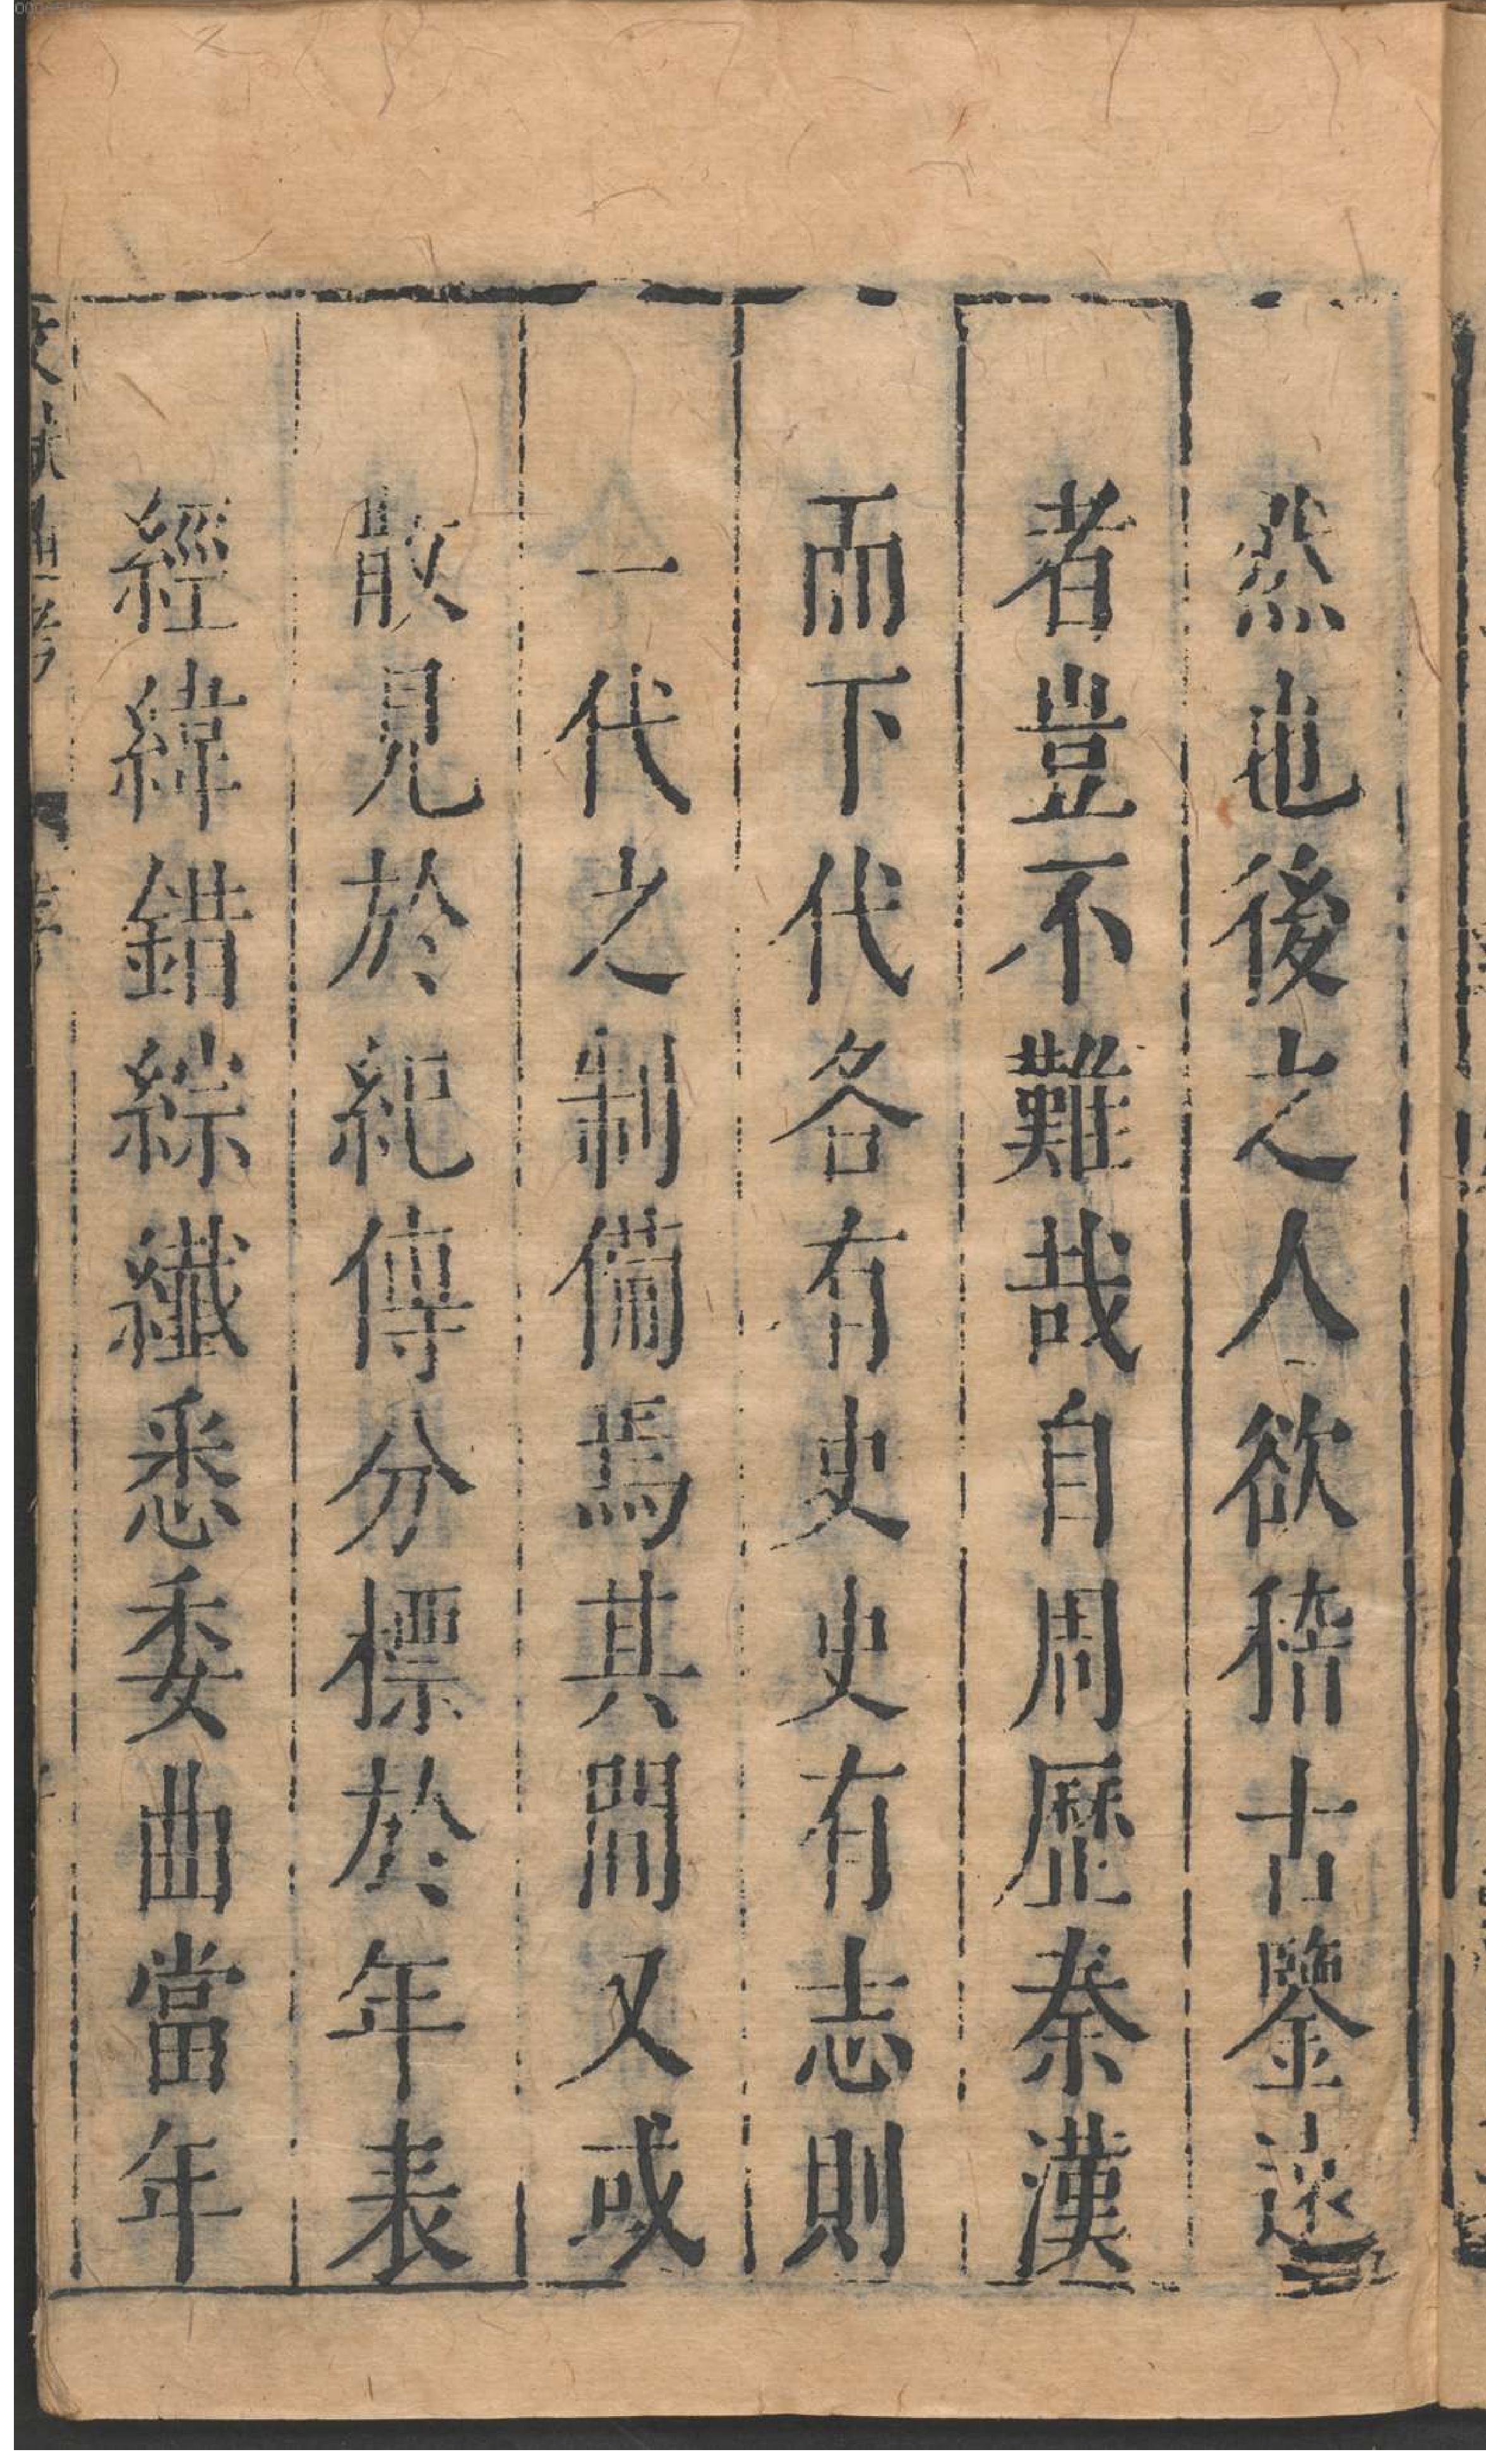 然也後之人欲稽古鑒遠
者豈不難哉自周歷秦漢
而下代各有史史有志則
一代之制備焉其間又或
散見於紀傳分標於年表
經緯錯綜纖悉委曲當年
文獻通考 序